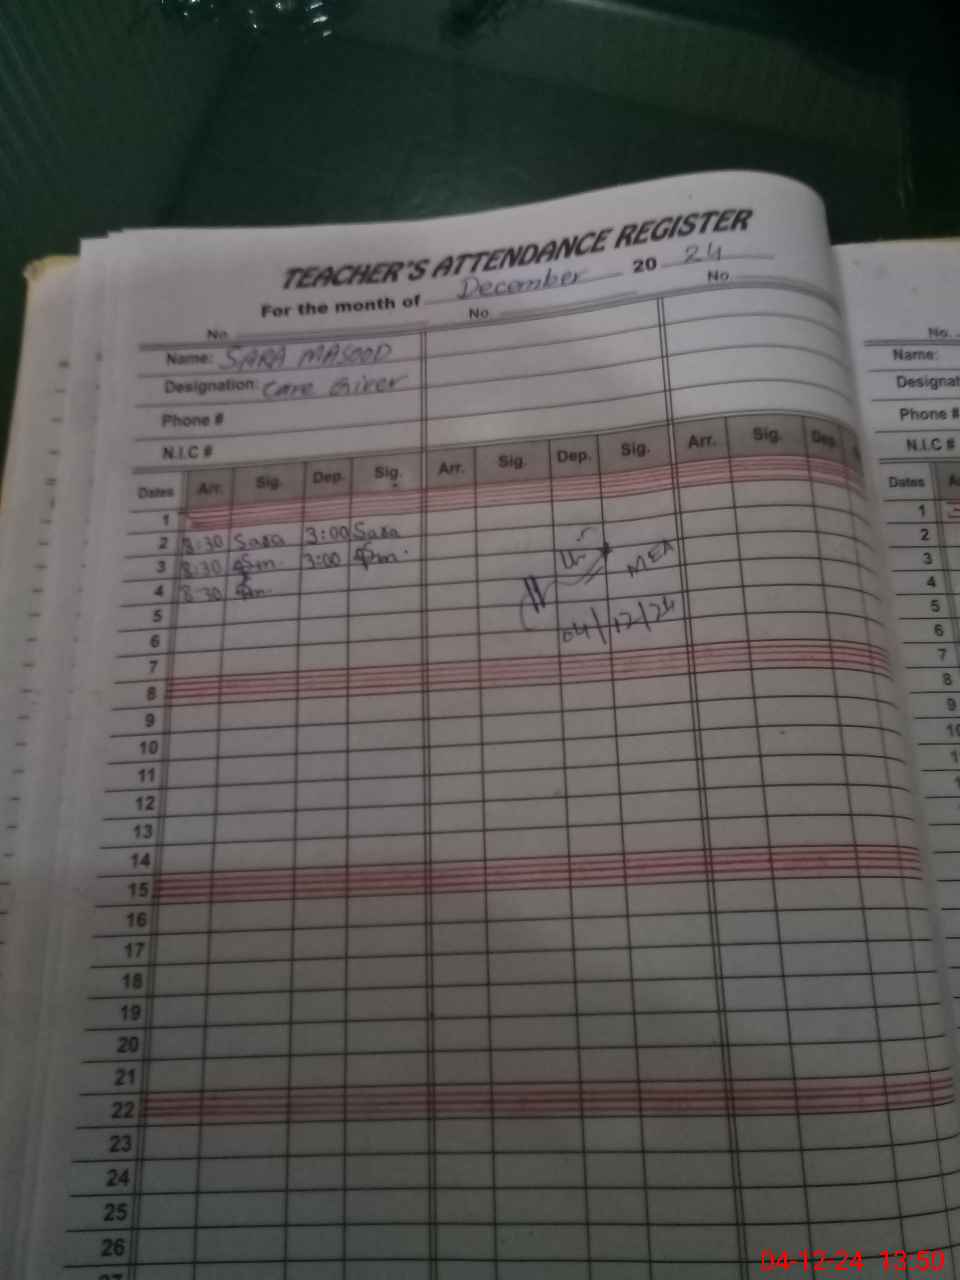 TEACHER'S ATTENDANCE REGISTER
For the month of December 20 24
No. No. No.
Name: SARA MASOOD
Designation: Care Giver
Phone #
N.I.C #
Dates Arr. Sig. Dep. Sig. Arr. Sig. Dep. Sig. Arr. Sig. Dep.
1
2 8:30 Sara 3:00 Sara
3 8:30 3:00
4 8:30
MEA
5
04/12/24
6
7
8
9
10
11
12
13
14
15
16
17
18
19
20
21
22
23
24
25
26
27
No.
Name:
Designat
Phone #
N.I.C #
Dates A
1
2
3
4
5
6
7
8
9
10
04-12-24 13:50